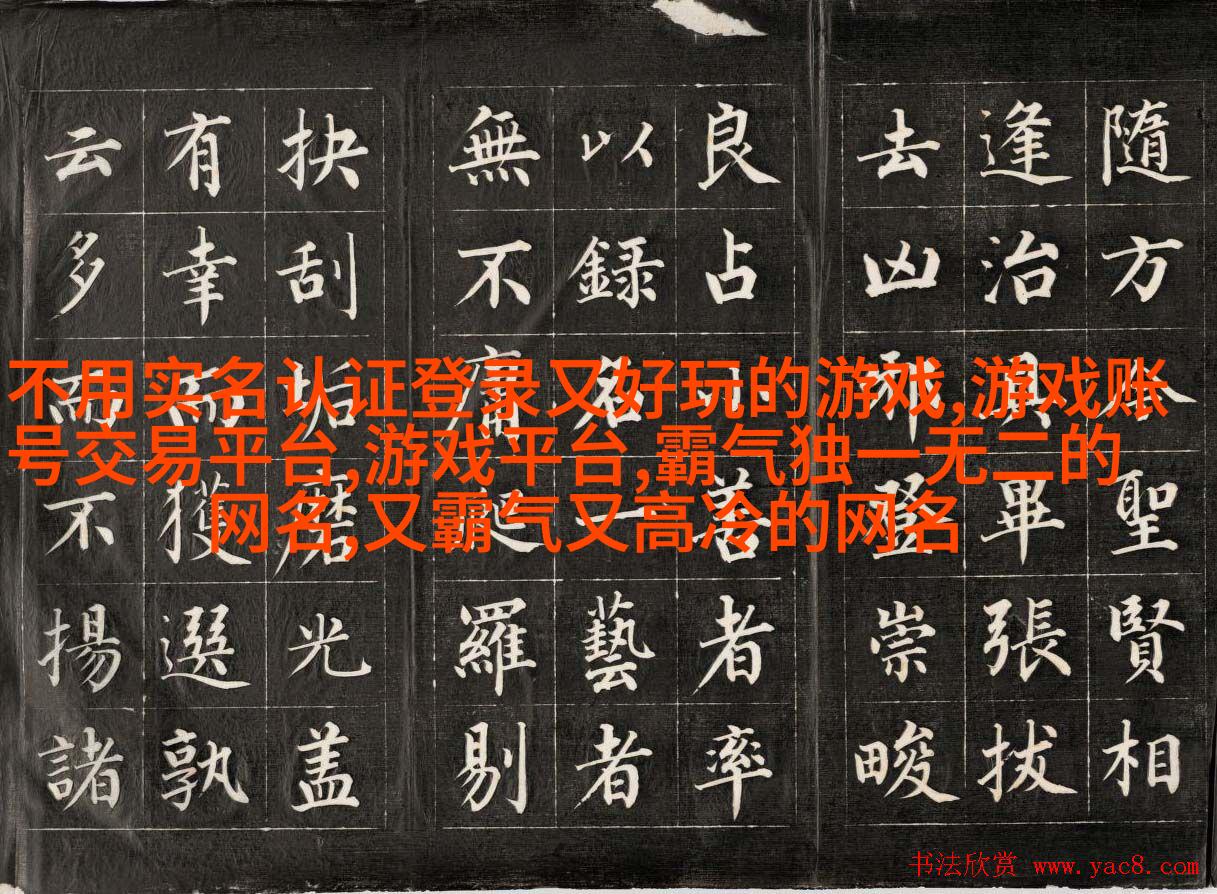 隨方今聖賢相
逢治具畢張拔
去凶邪登崇畯
良占小善者率
以録名一藝者
無不庸爬羅剔
抉刮垢磨光盖
有幸而獲選孰
云多而不揚諸
不用实名认证登录又好玩的游戏,游戏账
号交易平台,游戏平台,霸气独一无二的
网名,又霸气又高冷的网名
书法欣赏 www.yac8.com